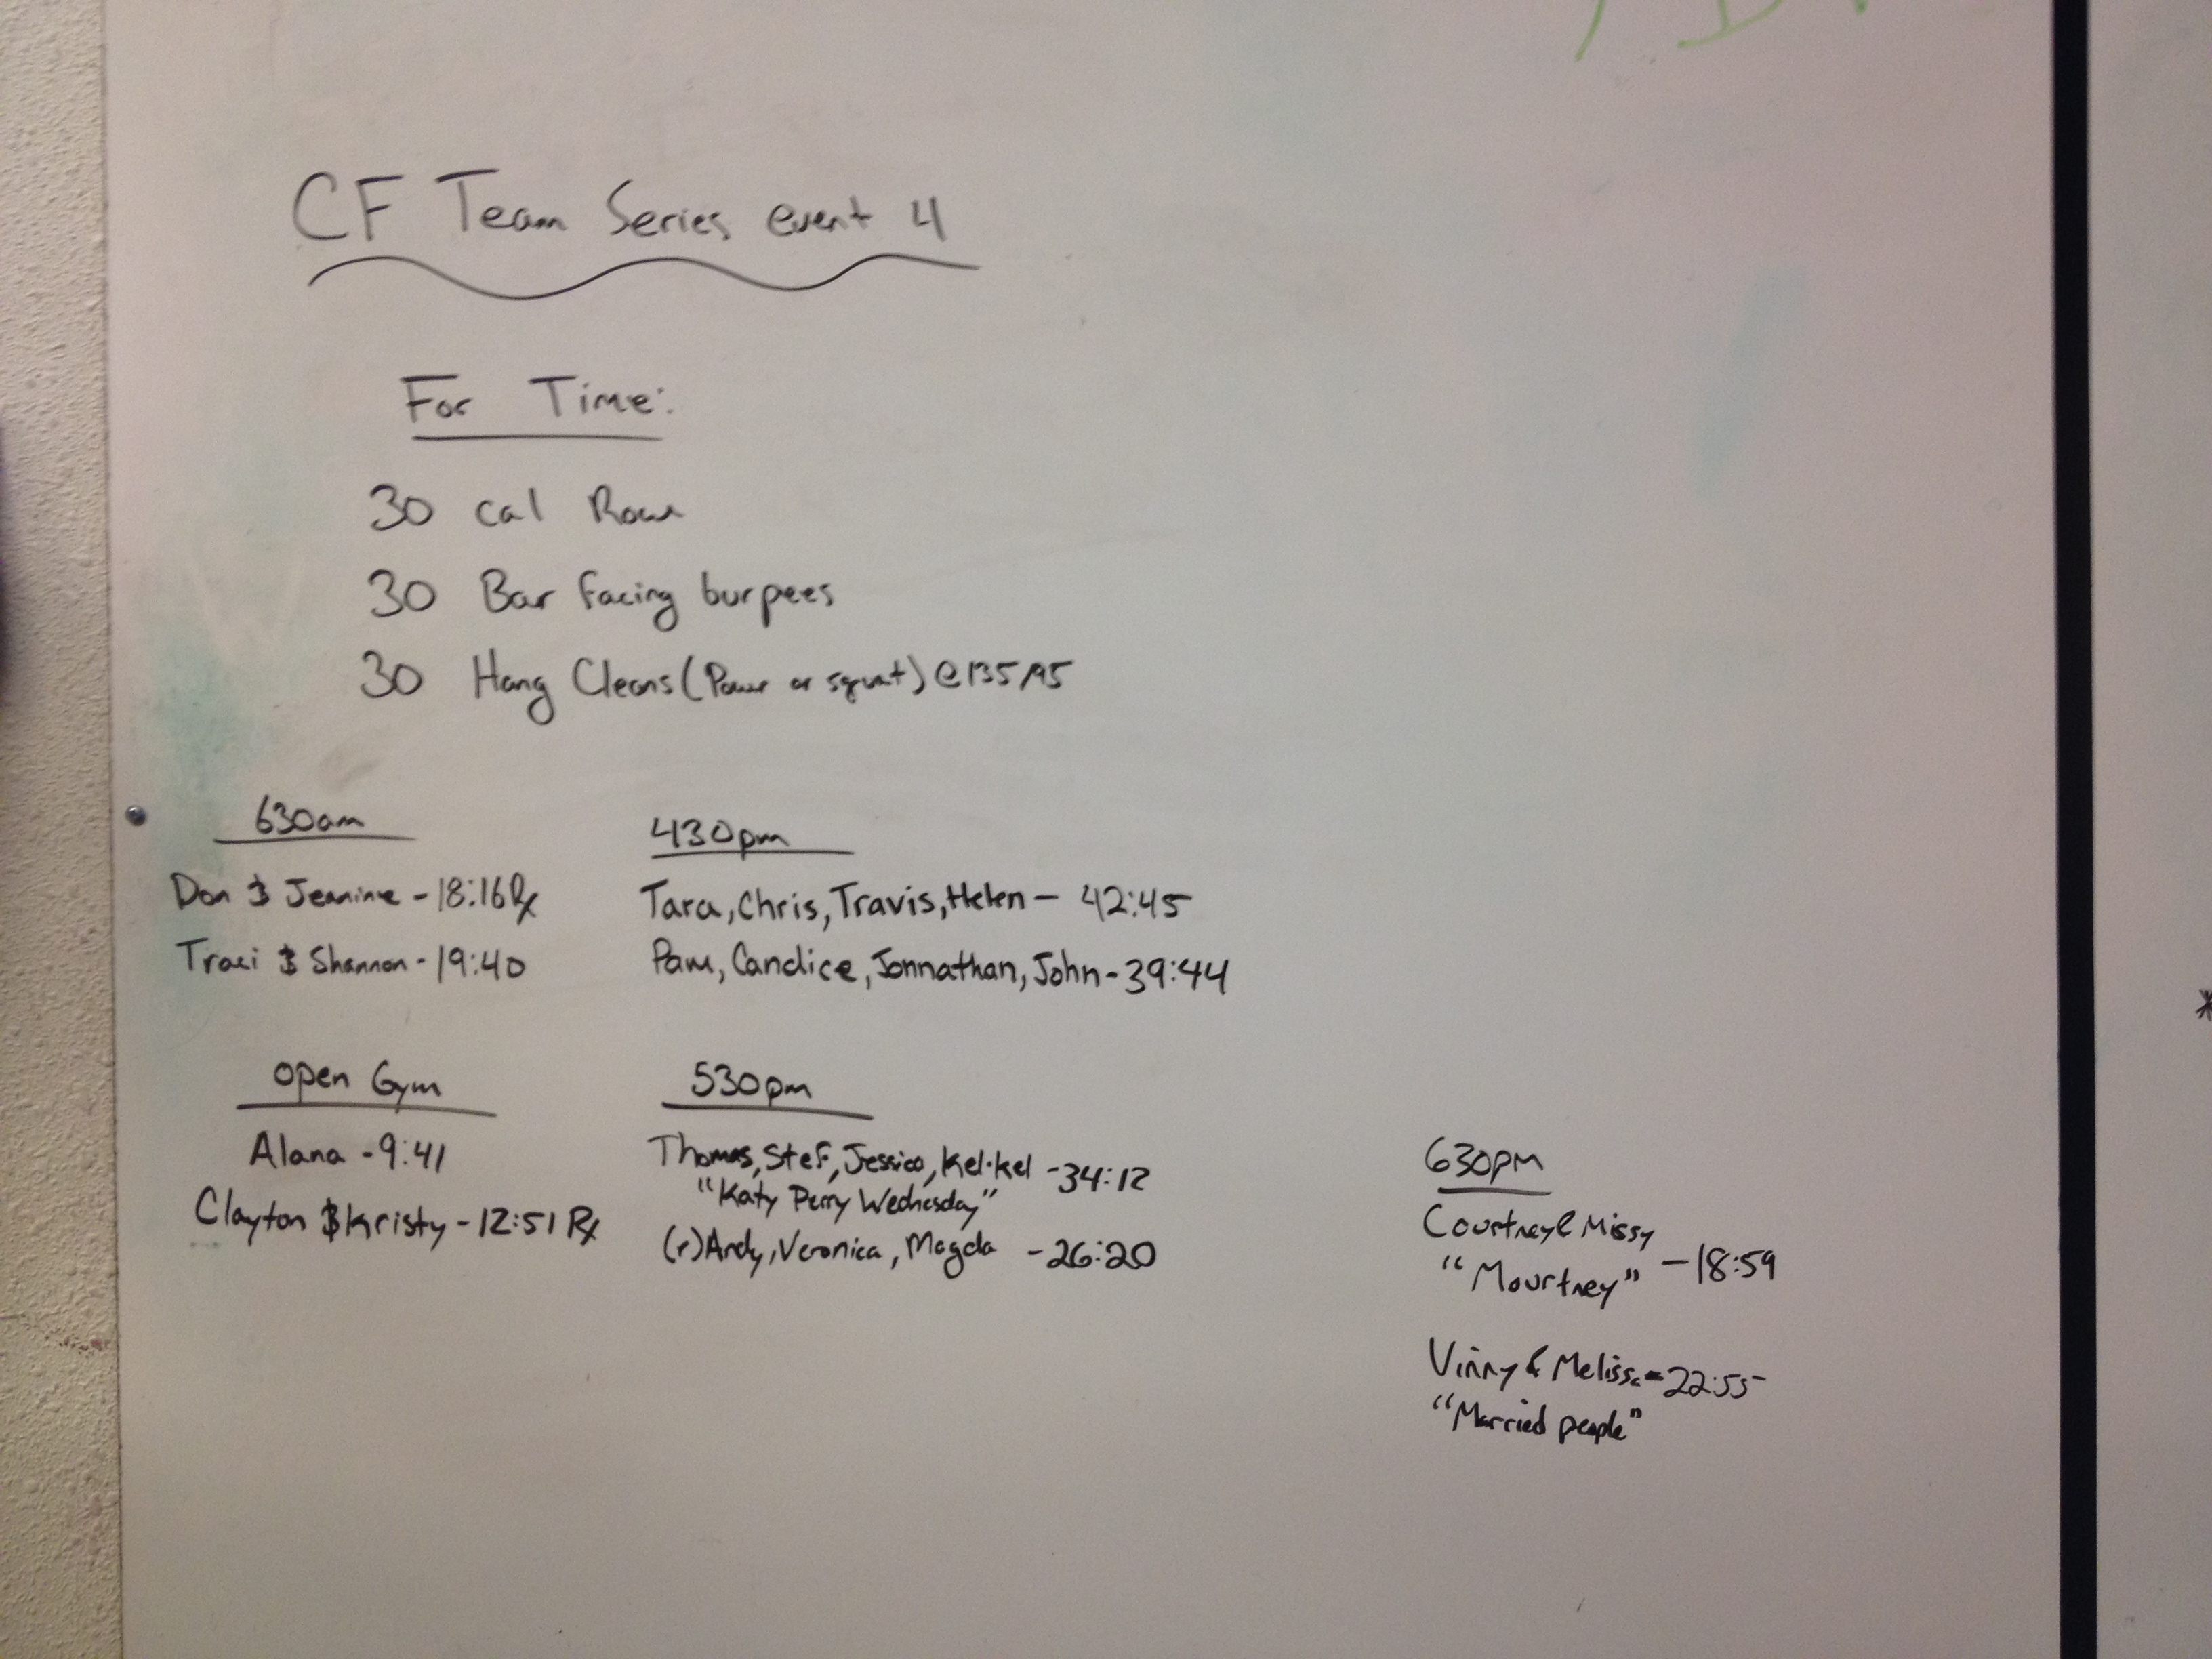 CF Team Series event 4
For Time:
30 cal Row
30 Bar facing burpees
30 Hang Cleans (Power or squat) @ 135/95
630am
Don & Jeanine - 18:16 Rx
Traci & Shannon - 19:40
430pm
Tara, Chris, Travis, Helen - 42:45
Pam, Candice, Jonnathan, John - 39:44
open Gym
Alana - 9:41
Clayton & Kristy - 12:51 Rx
530pm
Thomas, Stef, Jessica, Kel·Kel - 34:12
"Katy Perry Wednesday"
(r) Andy, Veronica, Magda - 26:20
630pm
Courtney & Missy
"Mourtney" - 18:59
Vinny & Melissa - 22:55
"Married people"